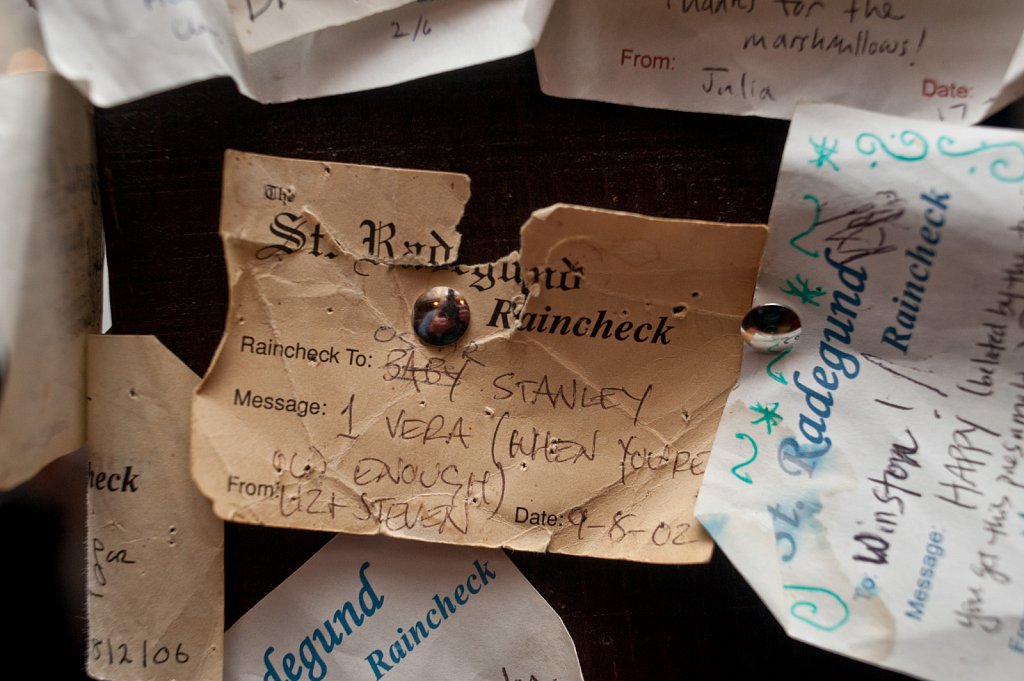 2/6
Thanks for the
marshmallows!
From: Julia
Date: 17
The
St. Radegund
Raincheck
OSCAR
Raincheck To: BABY STANLEY
Message: 1 VERA (WHEN YOU'RE
OLD ENOUGH)
From: LIZ + STEVEN Date: 9-8-02
heck
for
5/2/06
degund
Raincheck
St. Radegund
Raincheck
To: Winston
Message: HAPPY (belated by the
you got this